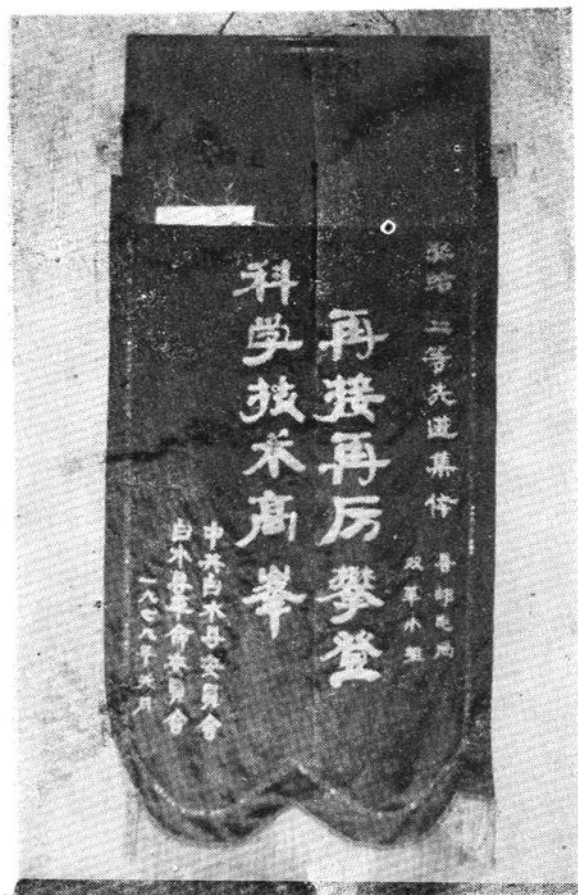 奖给二等先进集体
县邮电局
双革小组
再接再厉攀登
科学技术高峯
中共白水县委员会
白水县革命委员会
一九七八年六月